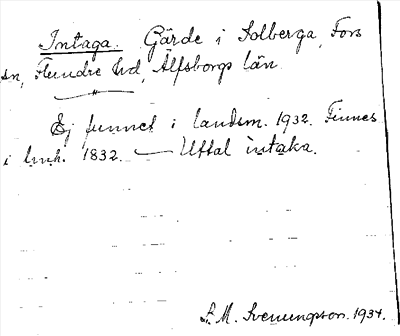 Intaga. Gärde i Solberga, Fors
sn, Flundre hd, Älfsborgs län.
Ej funnet i landsm. 1932. Finnes
i hmh. 1832. — Uttal ìntaka.
S. M. Svenungson. 1934.